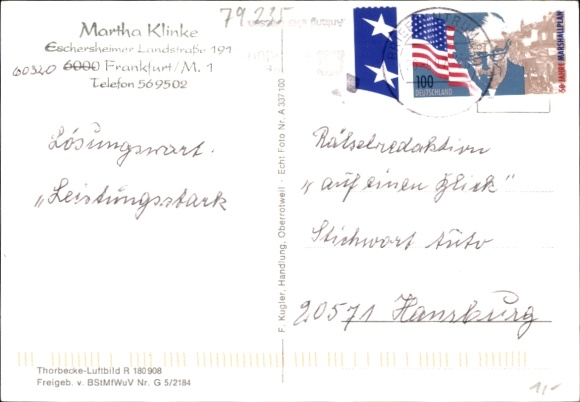 79 225
Martha Klinke
Eschersheimer Landstraße 191
60320 6000 Frankfurt/M. 1
Telefon 569502
Lösungswort.
„Leistungsstark
100
DEUTSCHLAND
50 JAHRE MARSHALLPLAN
Rätselredaktion
„auf einen Blick"
Stichwort Auto
20571 Hamburg
F. Kugler, Handlung, Oberrotweil · Echt Foto Nr. A 337 100
Thorbecke-Luftbild R 180908
Freigeb. v. BStMfWuV Nr. G 5/2184
1,-